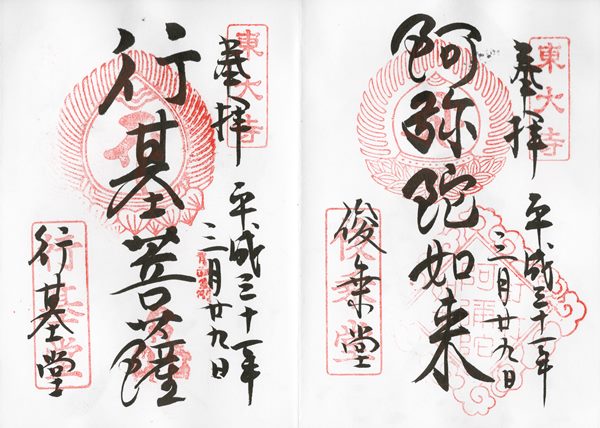 東大寺
奉拝
平成三十一年
三月廿九日
阿弥陀如来
俊乗堂
東大寺
奉拝
平成三十一年
三月廿九日
行基菩薩
行基堂